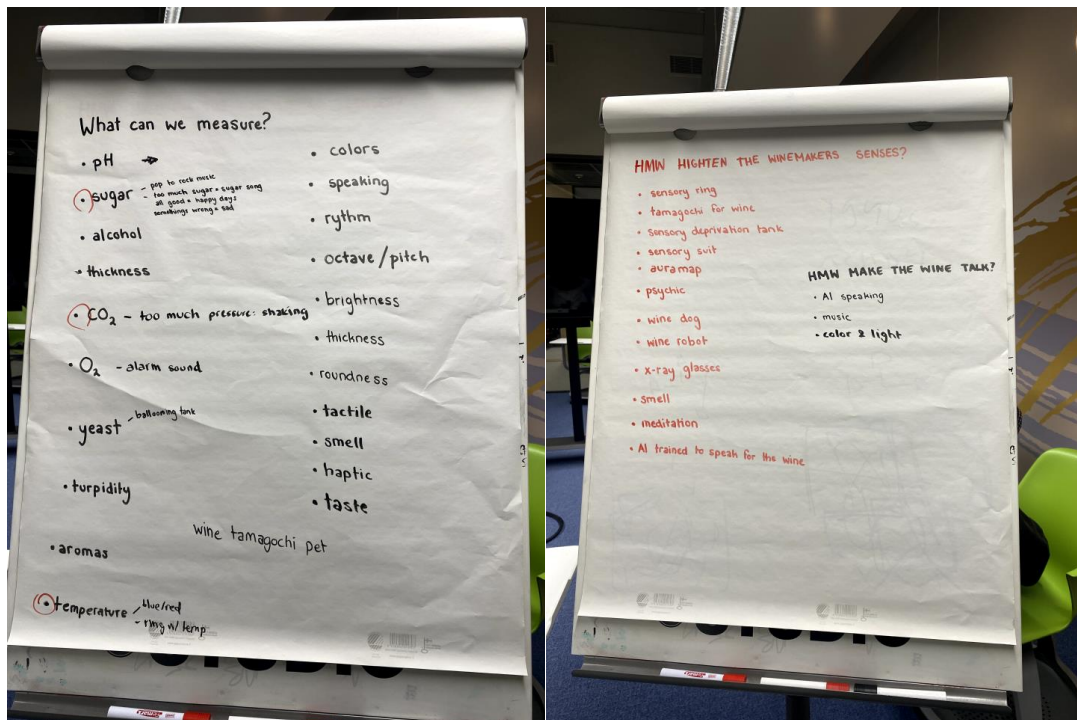 What can we measure?
• pH →
• sugar - pop to rock music
- too much sugar = sugar song
all good = happy days
somethings wrong = sad
• alcohol
• thickness
• CO₂ - too much pressure: shaking
• O₂ - alarm sound
• yeast - ballooming tank
• turpidity
• aromas
• temperature - blue/red
- ring w/ temp
• colors
• speaking
• rythm
• octave/pitch
• brightness
• thickness
• roundness
• tactile
• smell
• haptic
• taste
wine tamagochi pet
HMW HIGHTEN THE WINEMAKERS SENSES?
• sensory ring
• tamagochi for wine
• sensory deprivation tank
• sensory suit
• auramap
• psychic
• wine dog
• wine robot
• x-ray glasses
• smell
• meditation
• AI trained to speak for the wine
HMW MAKE THE WINE TALK?
• AI speaking
• music
• color & light